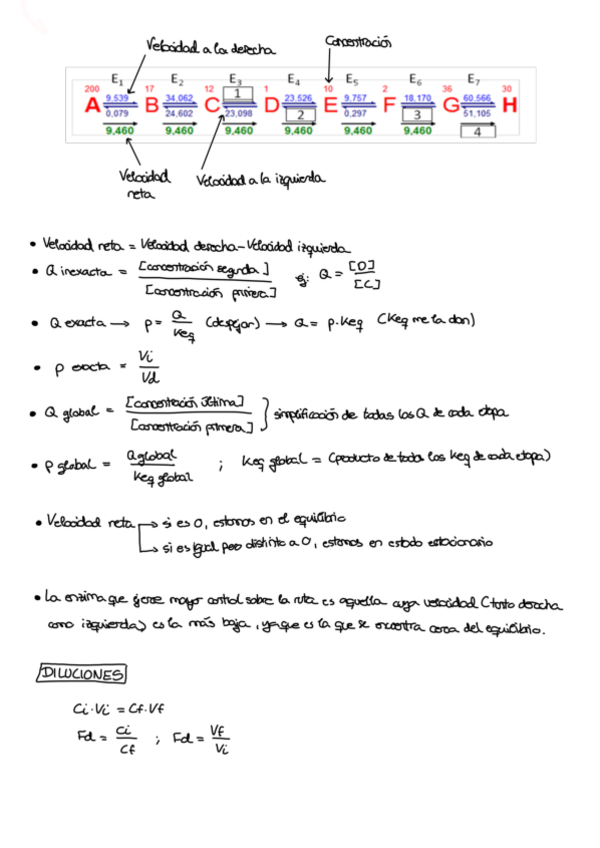 Velocidad a la derecha
Concentración
E1 E2 E3 E4 E5 E6 E7
200 17 12 1 10 2 36 30
A 9,539 B 34,062 C 1 D 23,526 E 9,757 F 18,170 G 60,566 H
0,079 24,602 23,098 2 0,297 3 51,105
9,460 9,460 9,460 9,460 9,460 9,460 4
Velocidad neta
Velocidad a la izquierda
• Velocidad neta = Velocidad derecha - Velocidad izquierda
• Q inexacta = [concentración segunda] / [concentración primera] ej: Q = [D] / [C]
• Q exacta → ρ = Q / Keq (despejar) → Q = ρ · Keq (Keq me la dan)
• ρ exacta = Vi / Vd
• Q global = [concentración última] / [concentración primera] } simplificación de todas las Q de cada etapa
• ρ global = Q global / Keq global ; Keq global = (producto de todas las Keq de cada etapa)
• Velocidad neta → si es 0, estamos en el equilibrio
→ si es igual pero distinto a 0, estamos en estado estacionario
• La enzima que ejerce mayor control sobre la ruta es aquella cuya velocidad (tanto derecha
como izquierda) es la más baja, ya que es la que se encuentra cerca del equilibrio.
DILUCIONES
Ci · Vi = Cf · Vf
Fd = Ci / Cf ; Fd = Vf / Vi